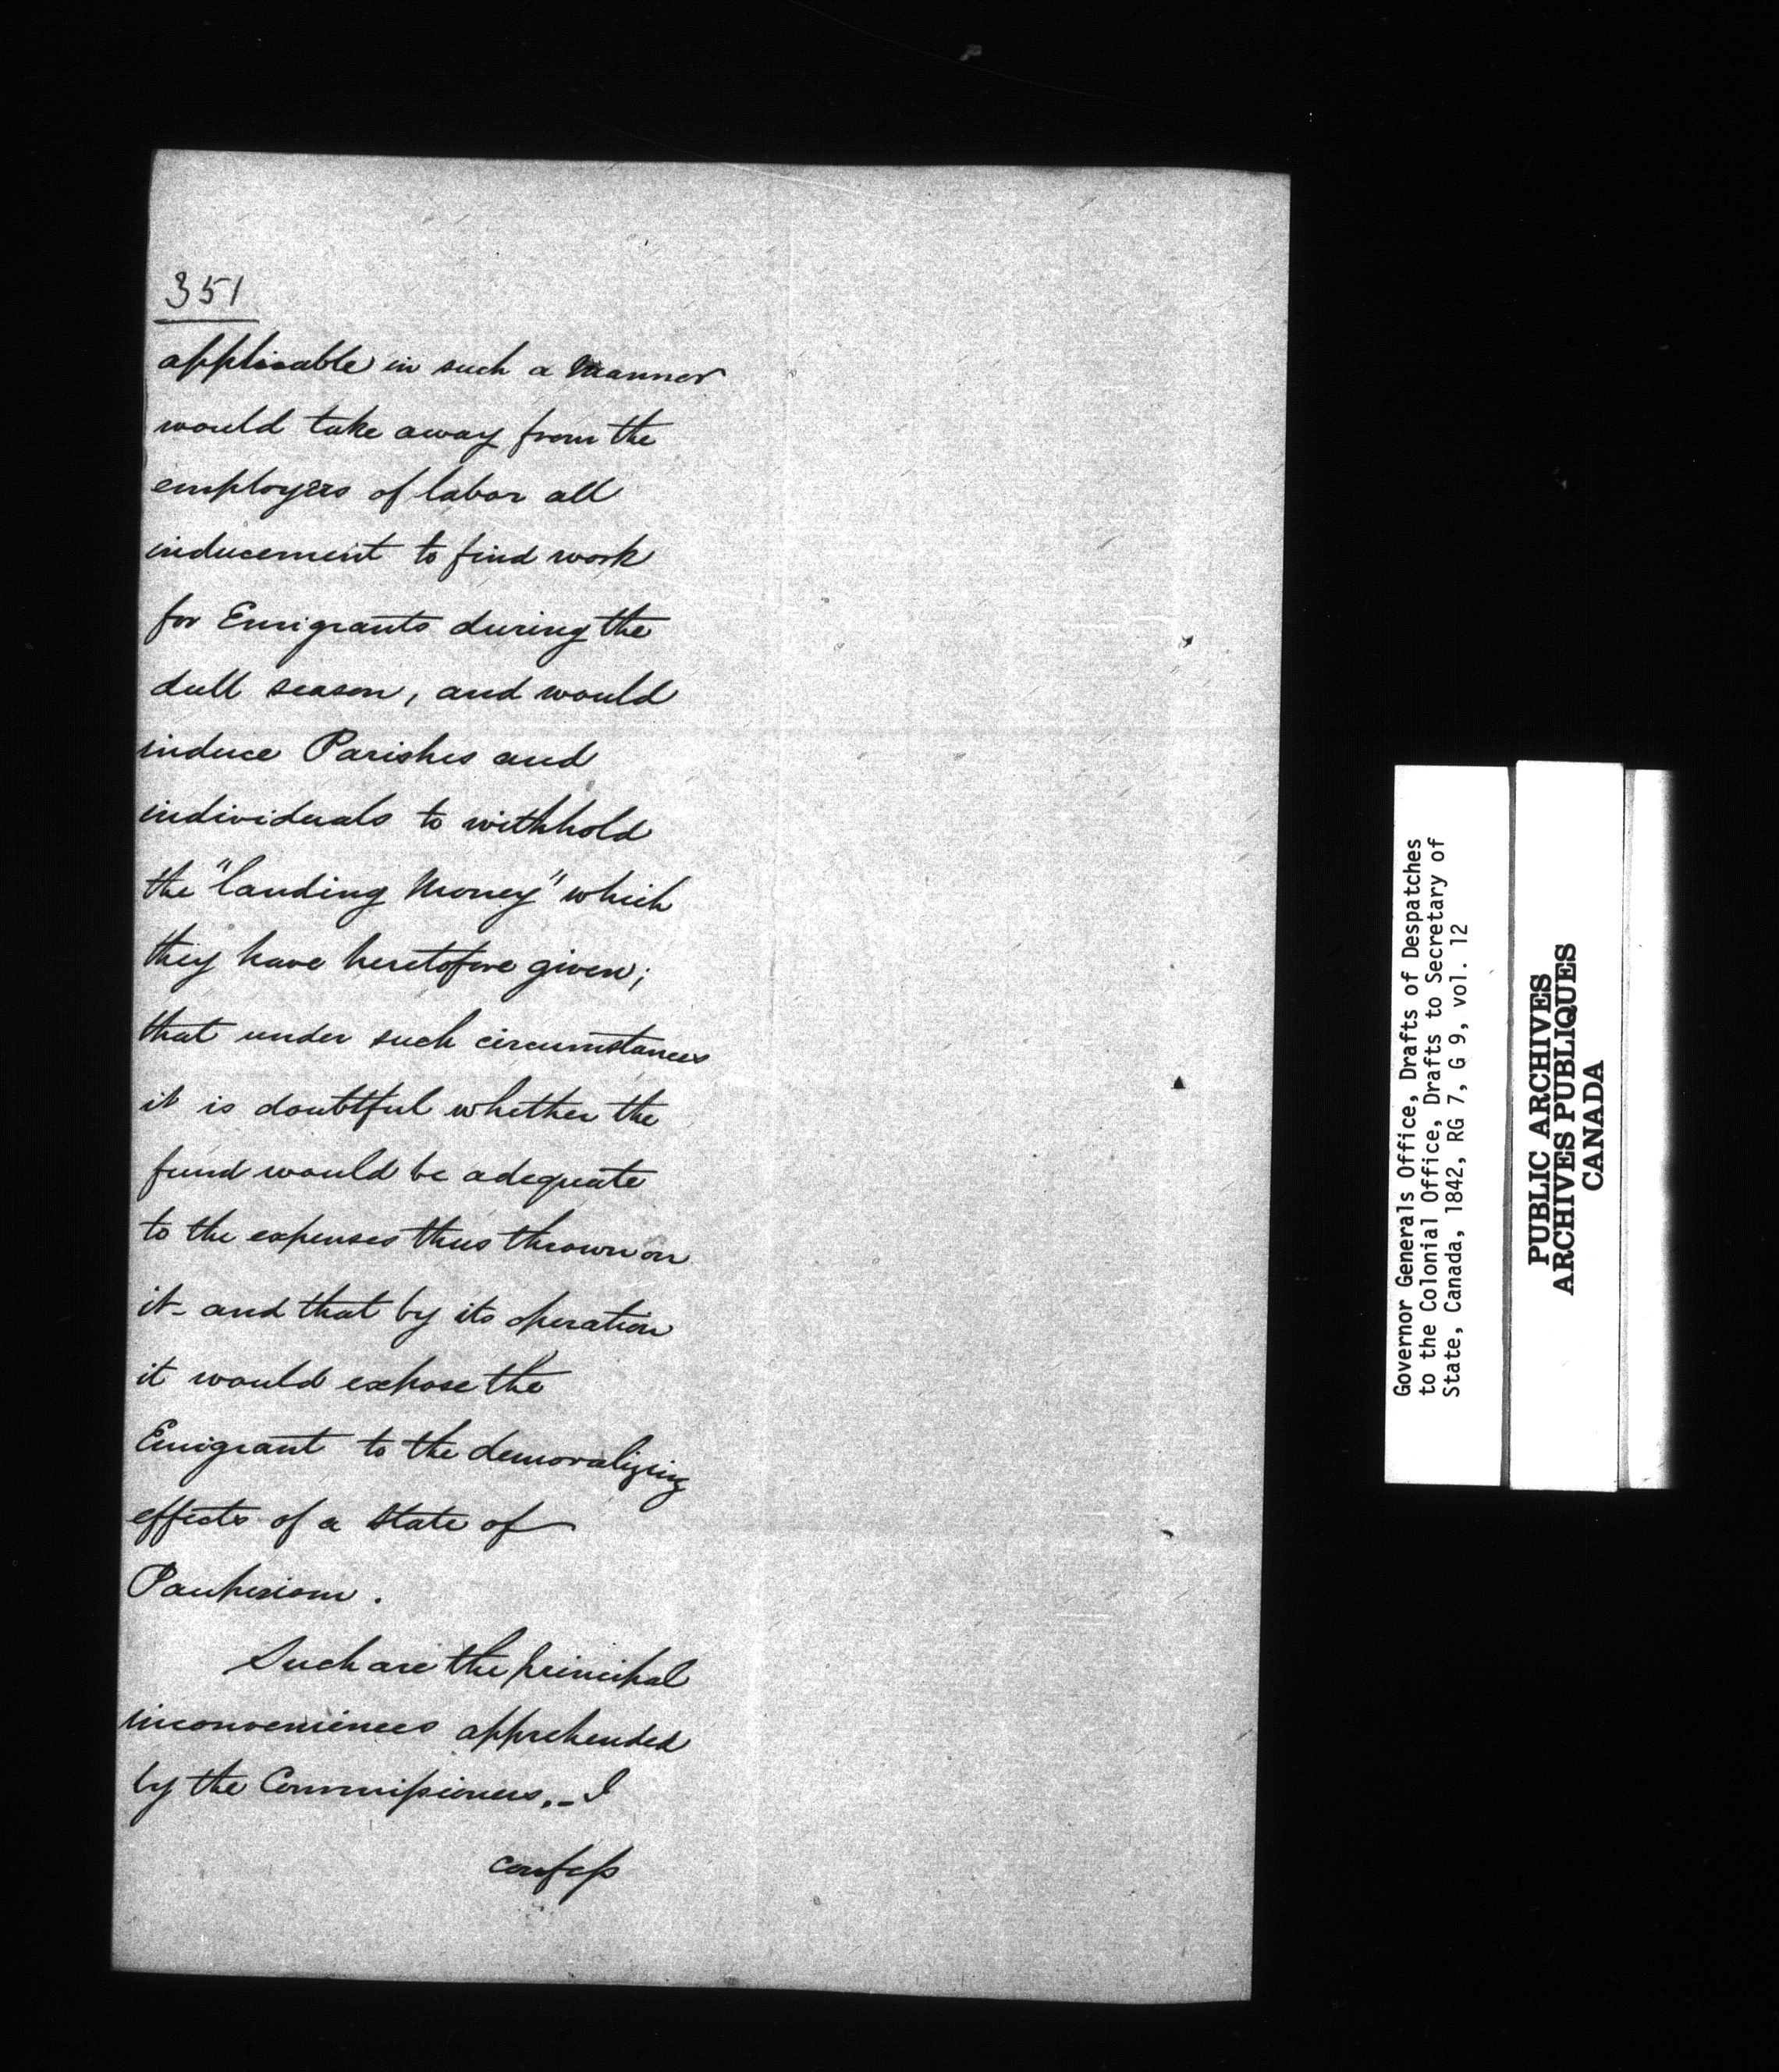 351
applicable in such a manner
would take away from the
employers of labor all
inducement to find work
for Emigrants during the
dull season, and would
induce Parishes and
individuals to withhold
the "landing Money" which
they have heretofore given;
that under such circumstances
it is doubtful whether the
fund would be adequate
to the expenses thus thrown on
it - and that by its operation
it would expose the
Emigrant to the demoralizing
effects of a state of
Pauperism.
Such are the principal
inconveniences apprehended
by the Commissioners. - I
confess
Governor Generals Office, Drafts of Despatches
to the Colonial Office, Drafts to Secretary of
State, Canada, 1842, RG 7, G 9, vol. 12
PUBLIC ARCHIVES
ARCHIVES PUBLIQUES
CANADA